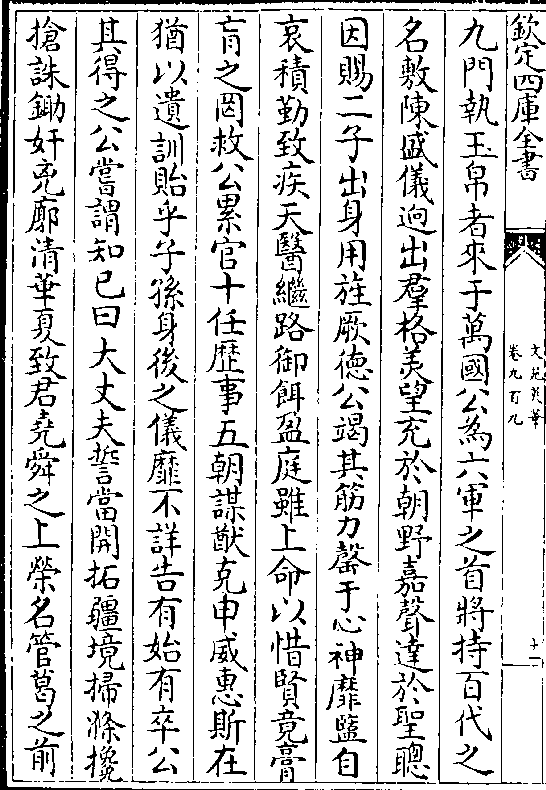 欽定四庫全書
文苑英華
卷九百九
十一
九門執玉帛者來于萬國公為六軍之首將持百代之
名敷陳盛儀逈出羣格羙望充於朝野嘉聲達於聖聰
因賜二子出身用旌厥德公竭其筋力罄于心神靡盬自
哀積勤致疾天醫繼路御餌盈庭雖上命以惜賢竟膏
肓之罔救公累官十任歴事五朝謀猷克申威惠斯在
猶以遺訓貽乎子孫身後之儀靡不詳告有始有卒公
其得之公嘗謂知已曰大丈夫誓當開拓疆境掃滌攙
搶誅鋤奸兇廓清華夏致君堯舜之上榮名管葛之前